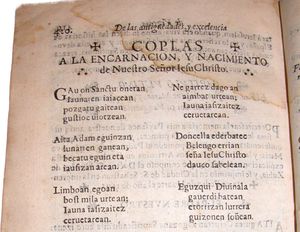 De las antiguedades, y excelencia
COPLAS
A LA ENCARNACION, Y NACIMIENTO
de Nuestro Señor Iesu Christo.
GAu on Sanctu onetan
Iaunaren iaiacean
pozgatu gaitean
gustioc viotzean.
Aita Adam eguinzan,
Iunan en ganean,
becatu eguin eta
iausi zan arean.
Limboan egoan
bost mila urtean,
Iauna iaf zaitez
ceruetarean.
Ne gartez dago zan
aimbat urtean,
Iauna iaf zaitez
ceruetarean.
Doncella ederbatec
Belengo errian
seña Iesu Christo
dauco sabelean.
Eguzqui Diuinala
gauerdi batean
etorri zan lurrera
guizonen soñean.